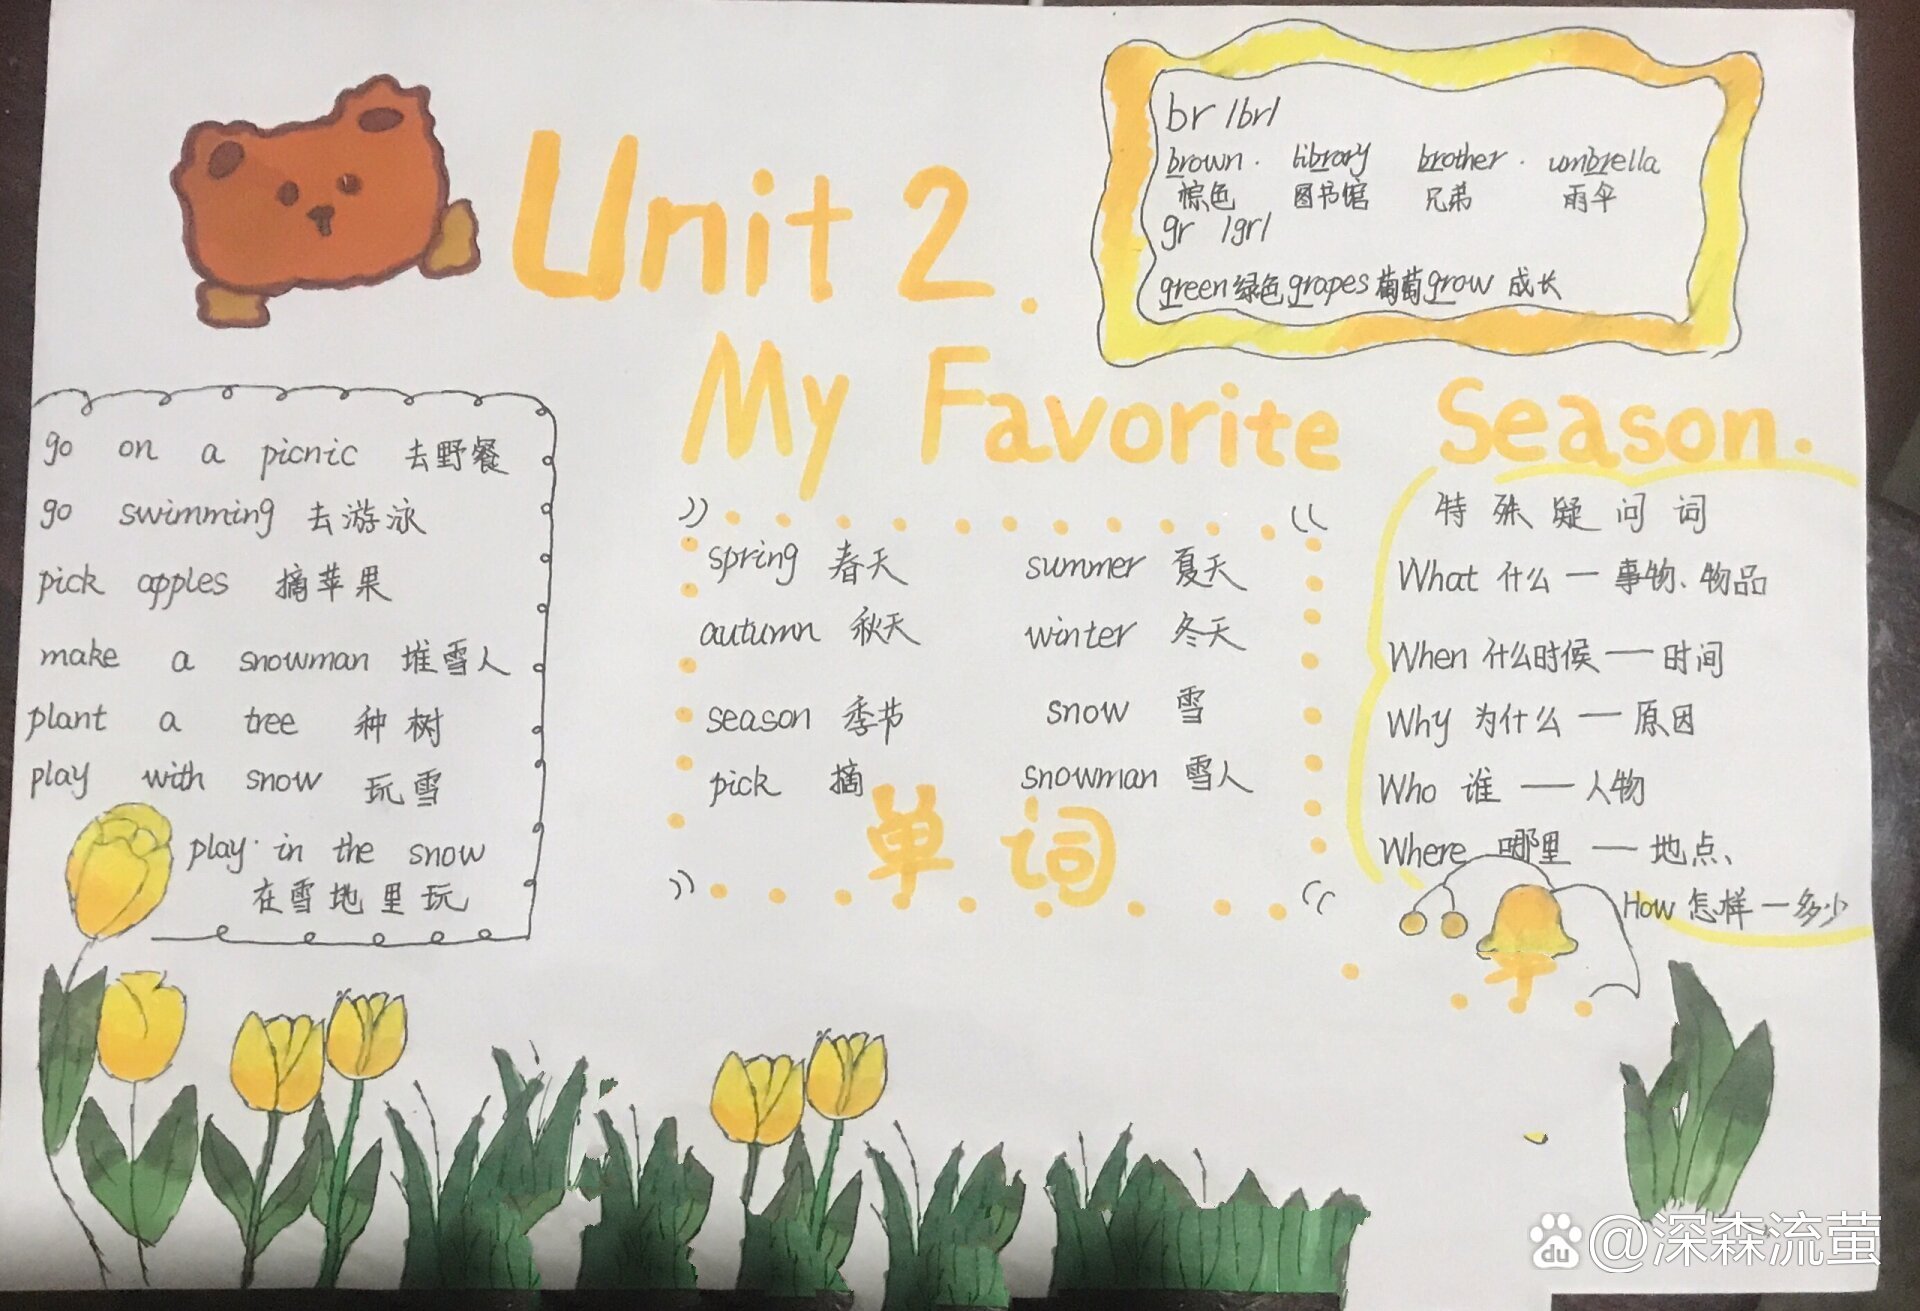 Unit 2.
My Favorite Season.
br /br/
brown. library brother. umbrella
棕色 图书馆 兄弟 雨伞
gr /gr/
green绿色 grapes葡萄 grow 成长
go on a picnic 去野餐
go swimming 去游泳
pick apples 摘苹果
make a snowman 堆雪人
plant a tree 种树
play with snow 玩雪
play in the snow
在雪地里玩
spring 春天 summer 夏天
autumn 秋天 winter 冬天
season 季节 snow 雪
pick 摘 snowman 雪人
单词
特殊疑问词
What 什么 — 事物、物品
When 什么时候 — 时间
Why 为什么 — 原因
Who 谁 — 人物
Where 哪里 — 地点、
How 怎样 — 多少
du @深森流萤